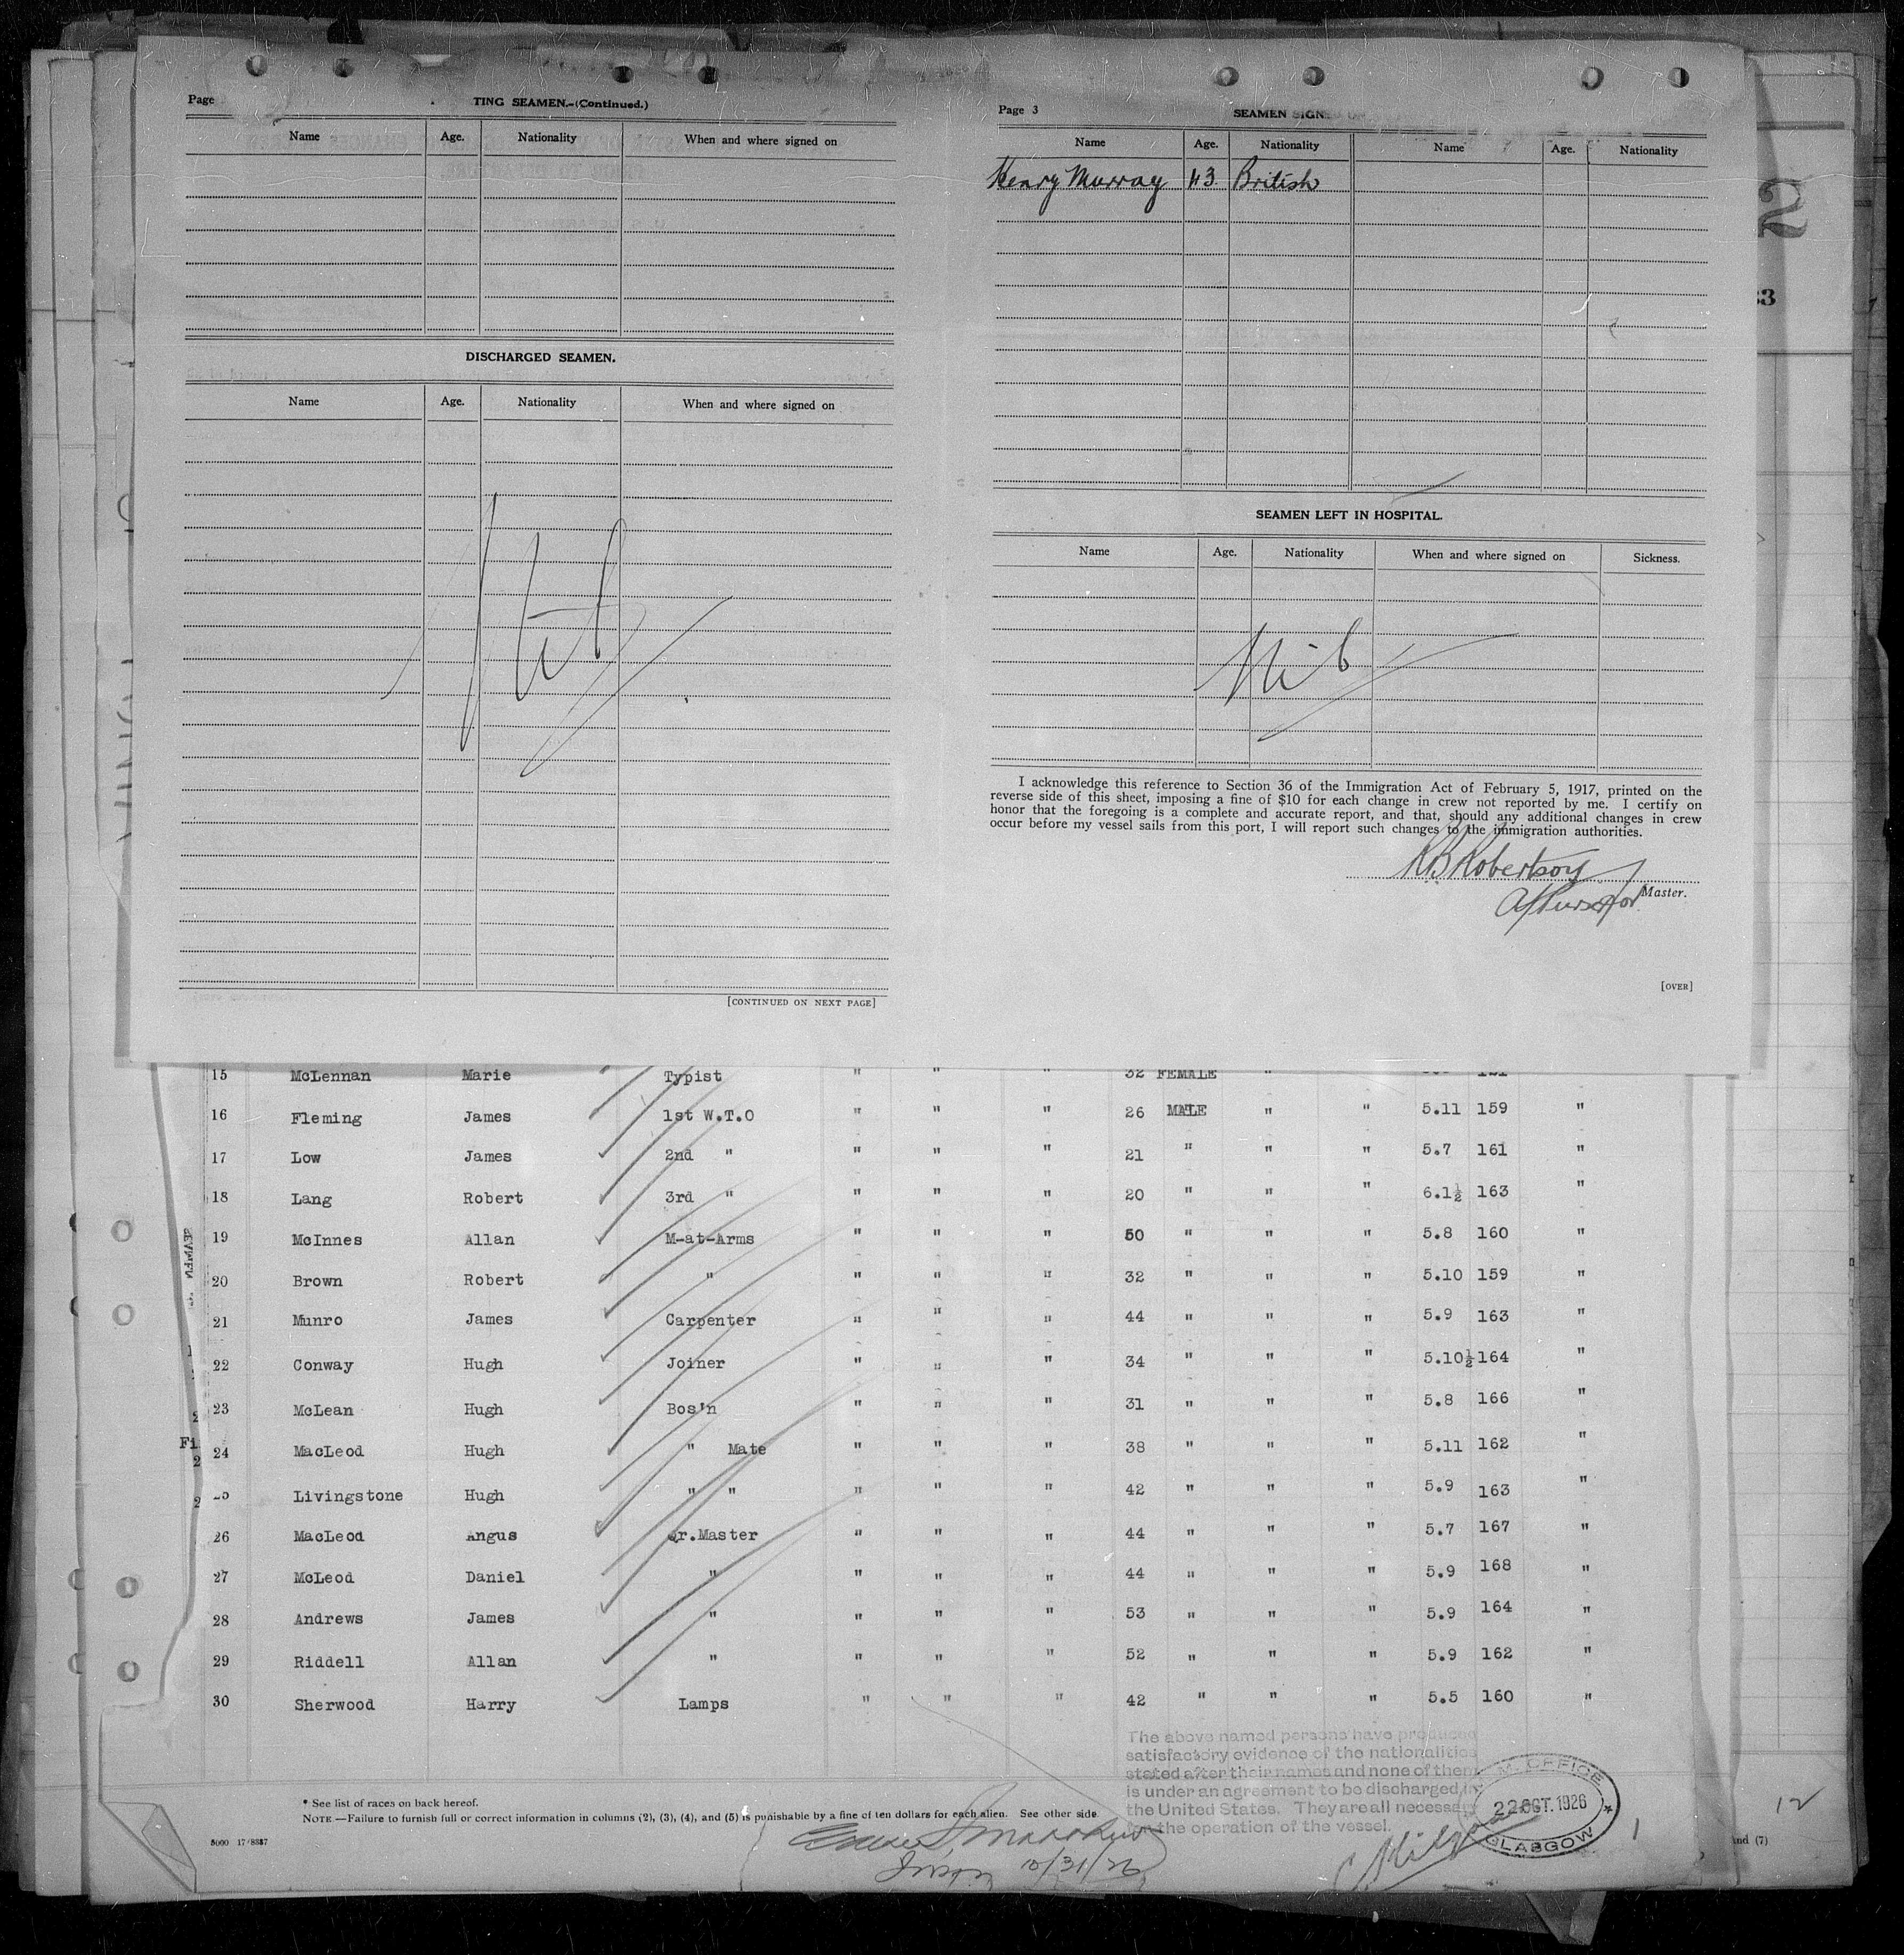 Page
TING SEAMEN.-(Continued.)
Name Age. Nationality When and where signed on
DISCHARGED SEAMEN.
Name Age. Nationality When and where signed on
[CONTINUED ON NEXT PAGE]
Page 3
SEAMEN SIGNED ON
Name Age. Nationality Name Age. Nationality
Henry Murray 43 British
SEAMEN LEFT IN HOSPITAL.
Name Age. Nationality When and where signed on Sickness.
Nil
I acknowledge this reference to Section 36 of the Immigration Act of February 5, 1917, printed on the
reverse side of this sheet, imposing a fine of $10 for each change in crew not reported by me. I certify on
honor that the foregoing is a complete and accurate report, and that, should any additional changes in crew
occur before my vessel sails from this port, I will report such changes to the immigration authorities.
R B Robertson
Master.
A/Purser for
[OVER]
15 McLennan Marie Typist " " " 32 FEMALE "
16 Fleming James 1st W.T.O " " " 26 MALE " " 5.11 159 "
17 Low James 2nd " " " " 21 " " " 5.7 161 "
18 Lang Robert 3rd " " " " 20 " " " 6.1½ 163 "
19 McInnes Allan M-at-Arms " " " 50 " " " 5.8 160 "
20 Brown Robert " " " " 32 " " " 5.10 159 "
21 Munro James Carpenter " " " 44 " " " 5.9 163 "
22 Conway Hugh Joiner " " " 34 " " " 5.10½ 164 "
23 McLean Hugh Bos'n " " " 31 " " " 5.8 166 "
24 MacLeod Hugh " Mate " " " 38 " " " 5.11 162 "
25 Livingstone Hugh " " " " " 42 " " " 5.9 163 "
26 MacLeod Angus Qr.Master " " " 44 " " " 5.7 167 "
27 McLeod Daniel " " " " 44 " " " 5.9 168 "
28 Andrews James " " " " 53 " " " 5.9 164 "
29 Riddell Allan " " " " 52 " " " 5.9 162 "
30 Sherwood Harry Lamps " " " 42 " " " 5.5 160 "
The above named persons have produced
satisfactory evidence of the nationalities
stated after their names and none of them
is under an agreement to be discharged in
the United States. They are all necessary
for the operation of the vessel.
OFFICE
22 OCT. 1926
GLASGOW
* See list of races on back hereof.
NOTE.—Failure to furnish full or correct information in columns (2), (3), (4), and (5) is punishable by a fine of ten dollars for each alien. See other side.
5000 17/8887
10/31/26
12
and (7)
2
33